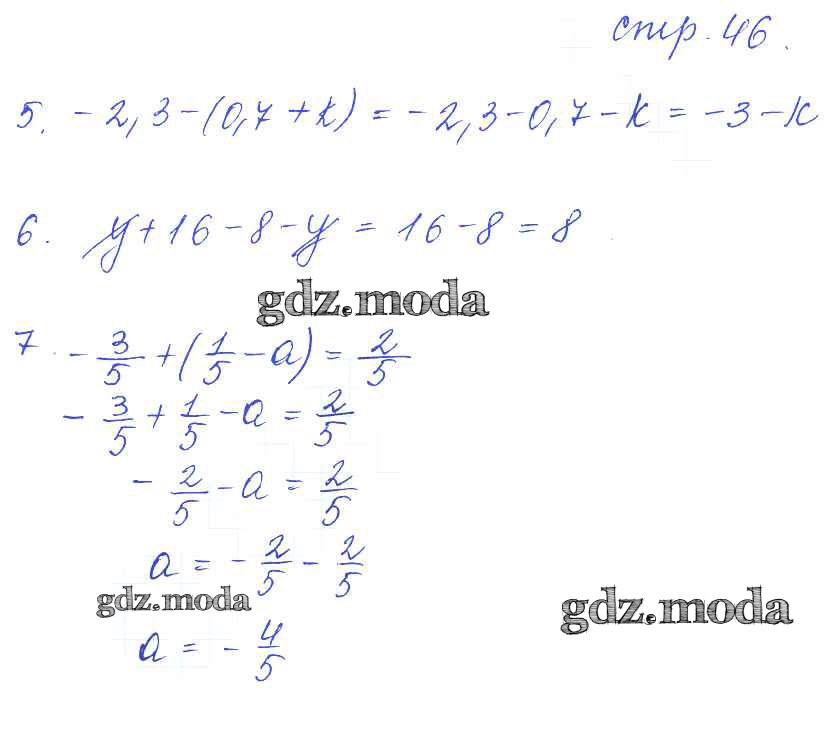 стр. 46.
5. -2,3-(0,7+k) = -2,3-0,7-k = -3-k
6. y+16-8-y = 16-8 = 8
gdz.moda
7. -3/5 + (1/5 - a) = 2/5
-3/5 + 1/5 - a = 2/5
-2/5 - a = 2/5
a = -2/5 - 2/5
gdz.moda
gdz.moda
a = -4/5